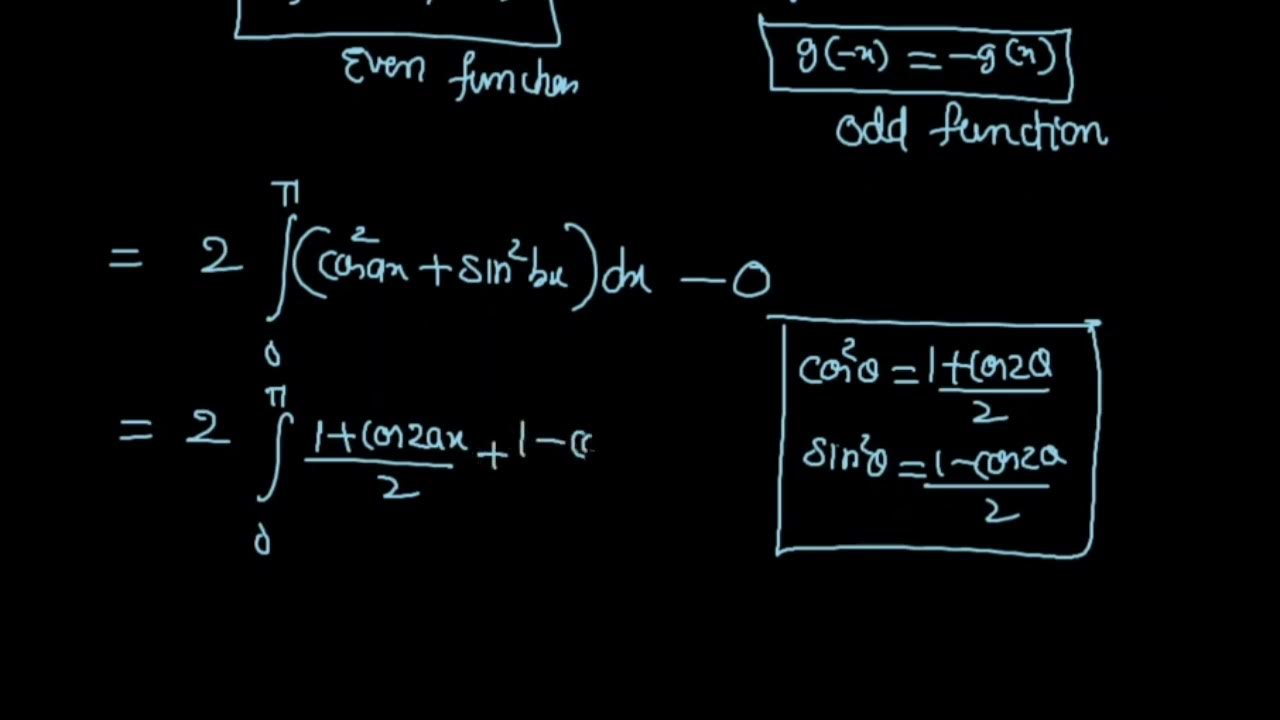 Even function
g(-x) = -g(x)
odd function
= 2 ∫₀^π (cos²ax + sin²bx) dx - 0
cos²θ = (1+cos2θ)/2
sin²θ = (1-cos2θ)/2
= 2 ∫₀^π (1+cos2ax)/2 + 1-c